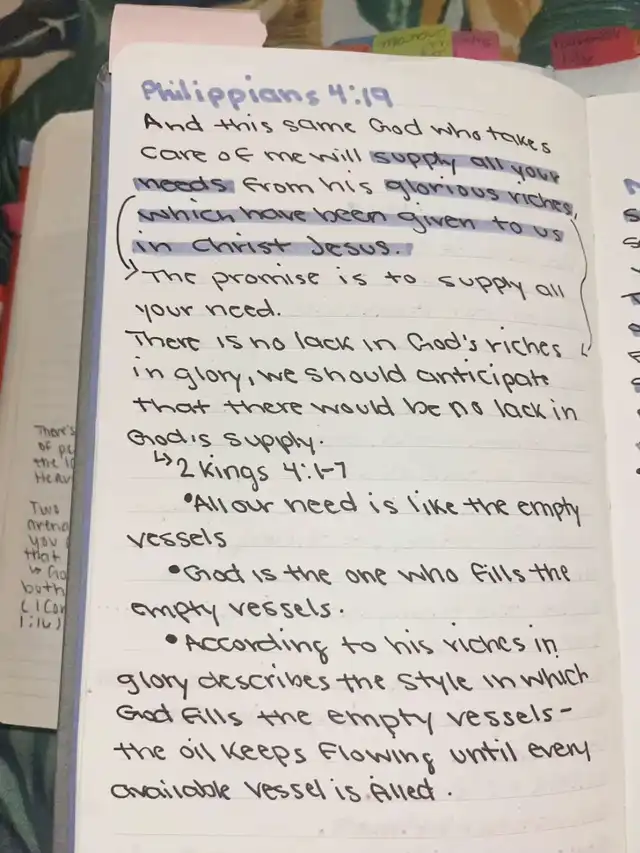 Philippians 4:19
And this same God who takes
care of me will supply all your
needs from his glorious riches,
which have been given to us
in Christ Jesus.
The promise is to supply all
your need.
There is no lack in God's riches
in glory, we should anticipate
that there would be no lack in
God's supply.
↳ 2 Kings 4:1-7
•All our need is like the empty
vessels
•God is the one who fills the
empty vessels.
•According to his riches in
glory describes the style in which
God fills the empty vessels-
the oil keeps flowing until every
available vessel is filled.
There's
of pe
the
Hea
Two
you
that
↳ Go
both
(1 Cor
1:16)